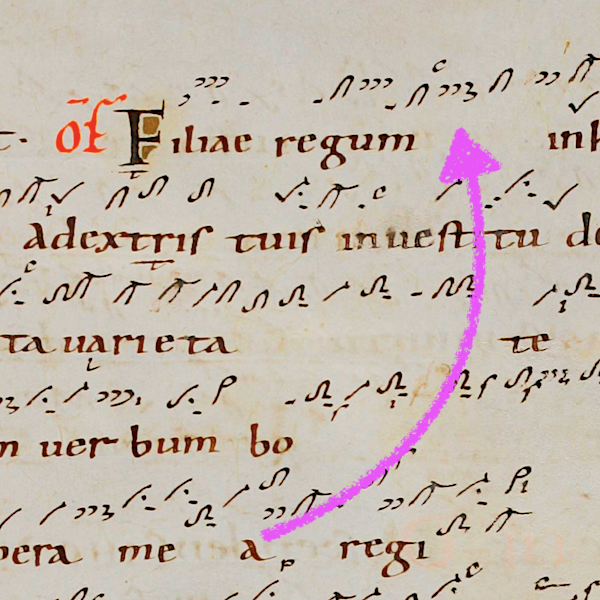 OF Filiae regum in
adextris tuis inuestitu de
ta uarieta te
uerbum bo
pera me a regi